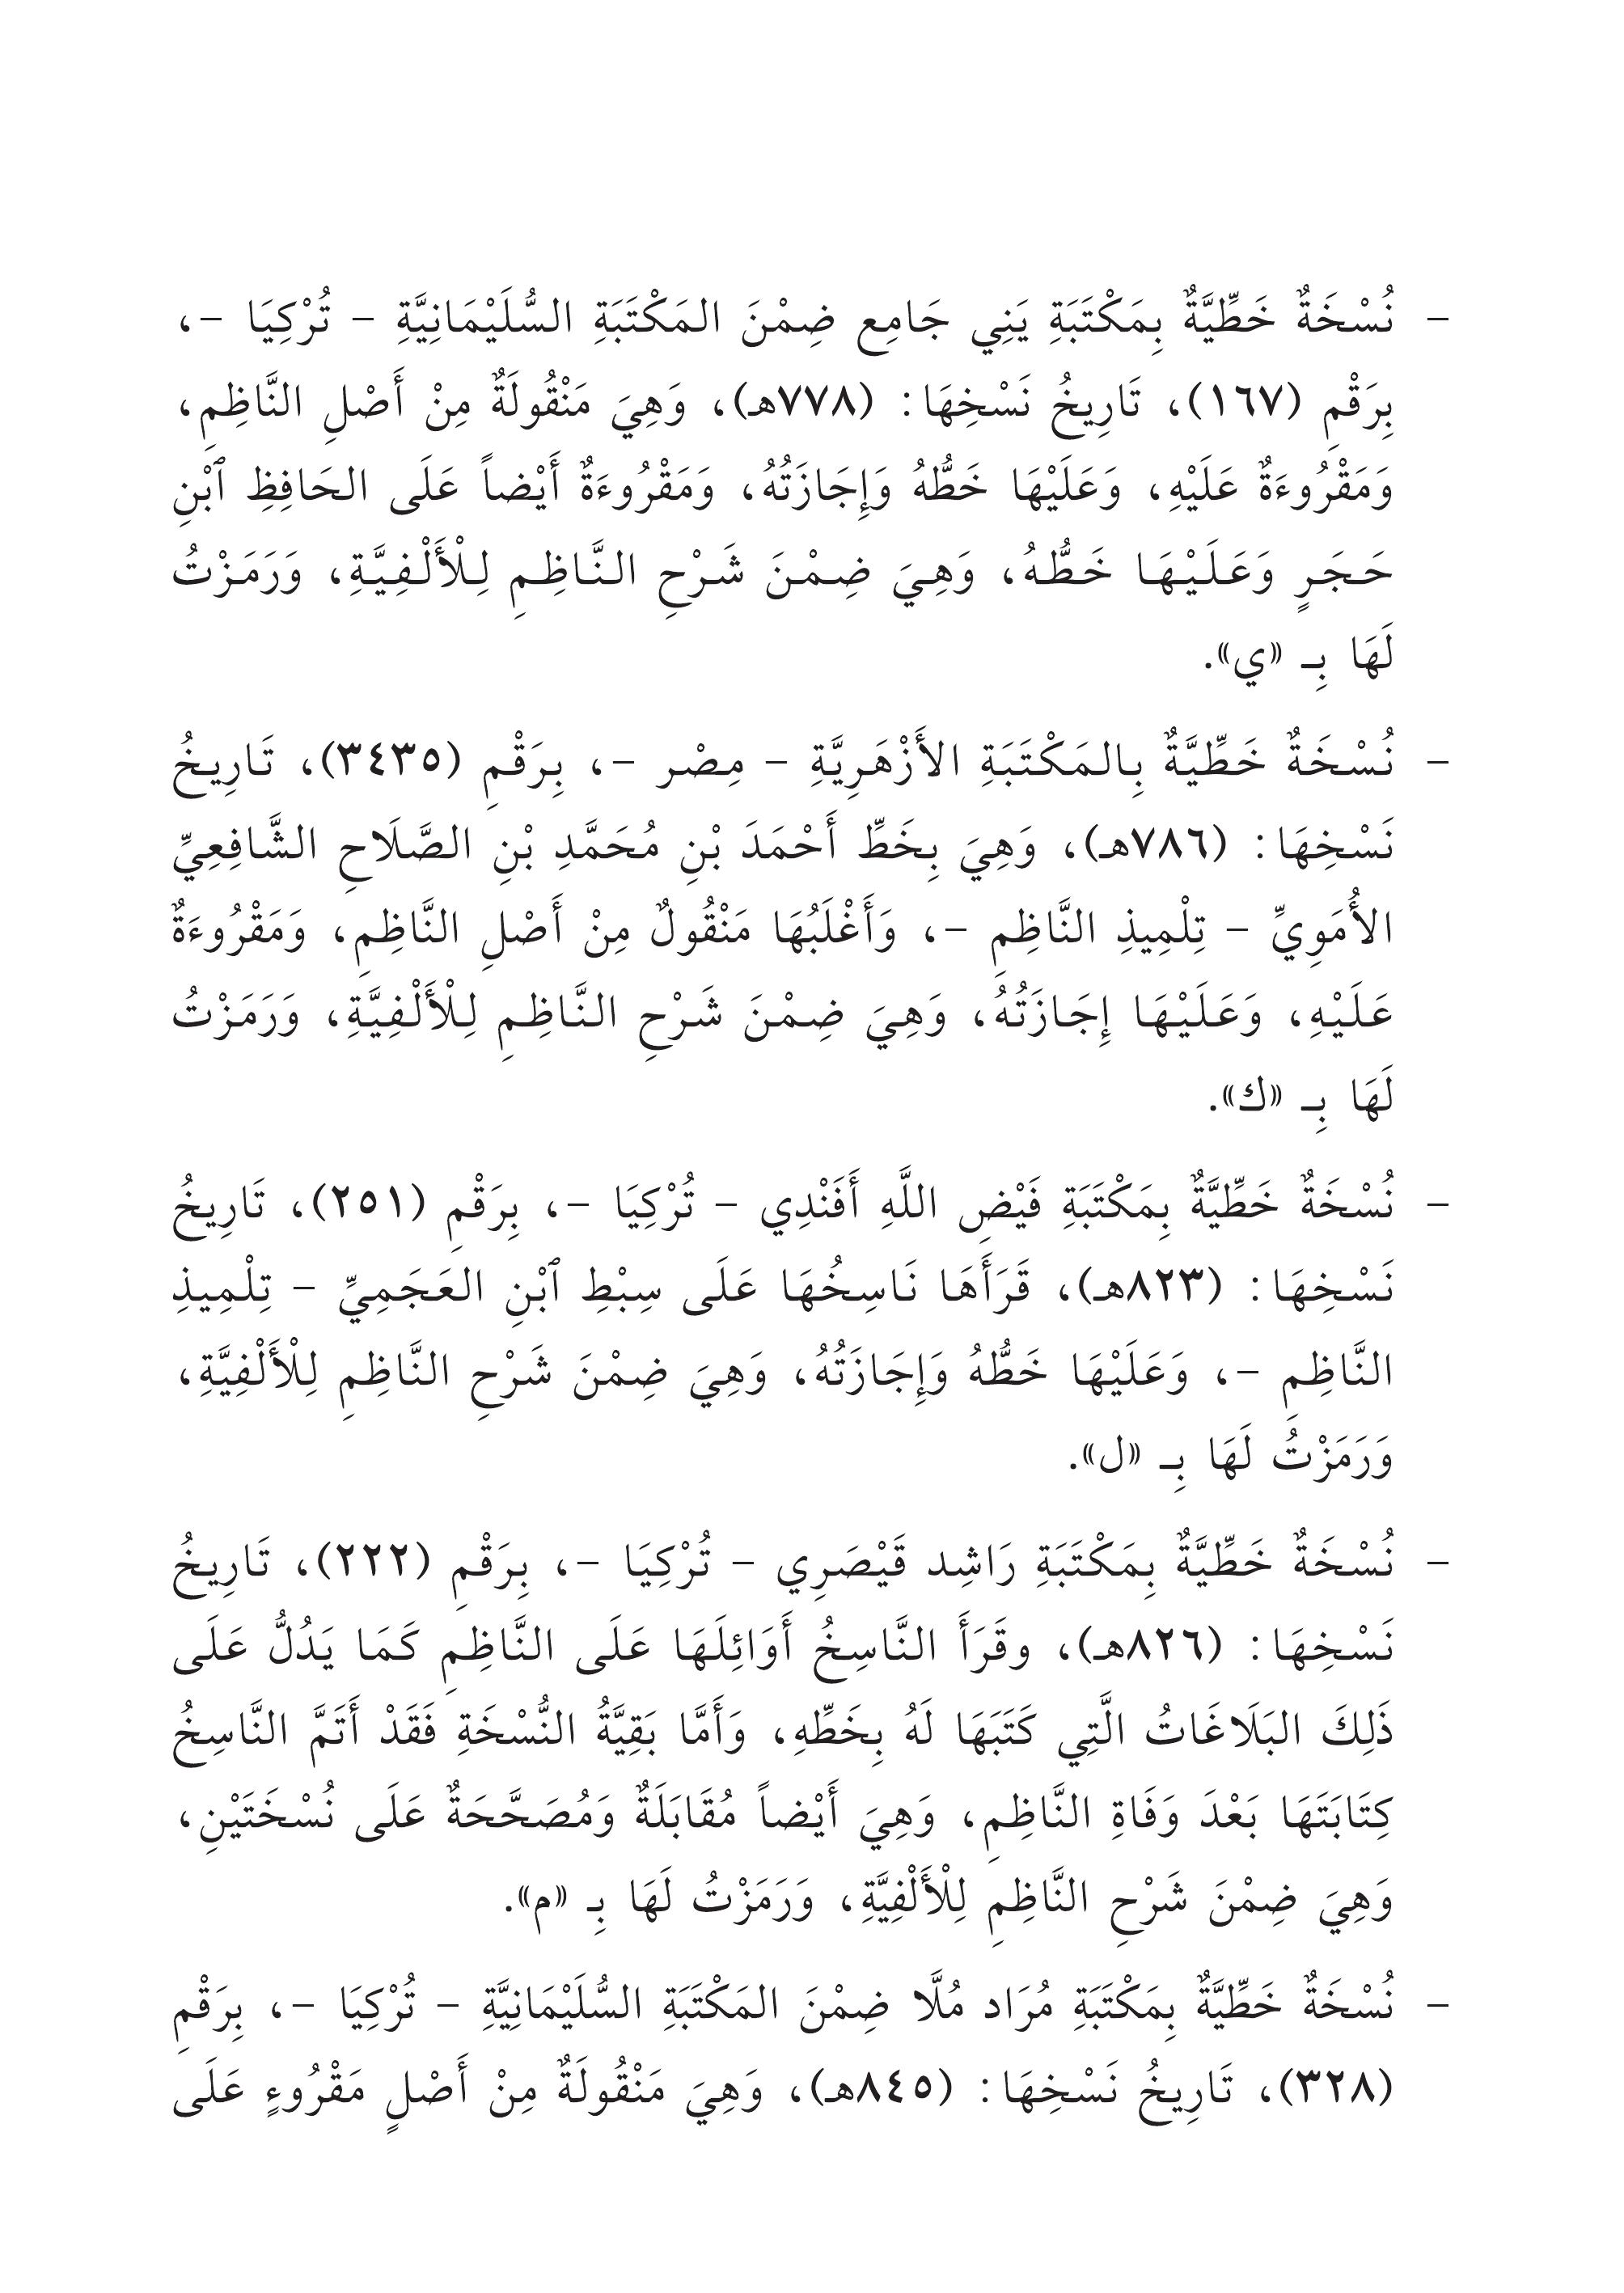 - نُسْخَةٌ خَطِّيَّةٌ بِمَكْتَبَةِ يَنِي جَامِع ضِمْنَ المَكْتَبَةِ السُّلَيْمَانِيَّةِ - تُرْكِيَا -،
بِرَقْمِ (١٦٧)، تَارِيخُ نَسْخِهَا: (٧٧٨هـ)، وَهِيَ مَنْقُولَةٌ مِنْ أَصْلِ النَّاظِمِ،
وَمَقْرُوءَةٌ عَلَيْهِ، وَعَلَيْهَا خَطُّهُ وَإِجَازَتُهُ، وَمَقْرُوءَةٌ أَيْضاً عَلَى الحَافِظِ ٱبْنِ
حَجَرٍ وَعَلَيْهَا خَطُّهُ، وَهِيَ ضِمْنَ شَرْحِ النَّاظِمِ لِلْأَلْفِيَّةِ، وَرَمَزْتُ
لَهَا بِـ «ي».
- نُسْخَةٌ خَطِّيَّةٌ بِالمَكْتَبَةِ الأَزْهَرِيَّةِ - مِصْر -، بِرَقْمِ (٣٤٣٥)، تَارِيخُ
نَسْخِهَا: (٧٨٦هـ)، وَهِيَ بِخَطِّ أَحْمَدَ بْنِ مُحَمَّدِ بْنِ الصَّلَاحِ الشَّافِعِيِّ
الأُمَوِيِّ - تِلْمِيذِ النَّاظِمِ -، وَأَغْلَبُهَا مَنْقُولٌ مِنْ أَصْلِ النَّاظِمِ، وَمَقْرُوءَةٌ
عَلَيْهِ، وَعَلَيْهَا إِجَازَتُهُ، وَهِيَ ضِمْنَ شَرْحِ النَّاظِمِ لِلْأَلْفِيَّةِ، وَرَمَزْتُ
لَهَا بِـ «ك».
- نُسْخَةٌ خَطِّيَّةٌ بِمَكْتَبَةِ فَيْضِ اللَّهِ أَفَنْدِي - تُرْكِيَا -، بِرَقْمِ (٢٥١)، تَارِيخُ
نَسْخِهَا: (٨٢٣هـ)، قَرَأَهَا نَاسِخُهَا عَلَى سِبْطِ ٱبْنِ العَجَمِيِّ - تِلْمِيذِ
النَّاظِمِ -، وَعَلَيْهَا خَطُّهُ وَإِجَازَتُهُ، وَهِيَ ضِمْنَ شَرْحِ النَّاظِمِ لِلْأَلْفِيَّةِ،
وَرَمَزْتُ لَهَا بِـ «ل».
- نُسْخَةٌ خَطِّيَّةٌ بِمَكْتَبَةِ رَاشِد قَيْصَرِي - تُرْكِيَا -، بِرَقْمِ (٢٢٢)، تَارِيخُ
نَسْخِهَا: (٨٢٦هـ)، وقَرَأَ النَّاسِخُ أَوَائِلَهَا عَلَى النَّاظِمِ كَمَا يَدُلُّ عَلَى
ذَلِكَ البَلَاغَاتُ الَّتِي كَتَبَهَا لَهُ بِخَطِّهِ، وَأَمَّا بَقِيَّةُ النُّسْخَةِ فَقَدْ أَتَمَّ النَّاسِخُ
كِتَابَتَهَا بَعْدَ وَفَاةِ النَّاظِمِ، وَهِيَ أَيْضاً مُقَابَلَةٌ وَمُصَحَّحَةٌ عَلَى نُسْخَتَيْنِ،
وَهِيَ ضِمْنَ شَرْحِ النَّاظِمِ لِلْأَلْفِيَّةِ، وَرَمَزْتُ لَهَا بِـ «م».
- نُسْخَةٌ خَطِّيَّةٌ بِمَكْتَبَةِ مُرَاد مُلَّا ضِمْنَ المَكْتَبَةِ السُّلَيْمَانِيَّةِ - تُرْكِيَا -، بِرَقْمِ
(٣٢٨)، تَارِيخُ نَسْخِهَا: (٨٤٥هـ)، وَهِيَ مَنْقُولَةٌ مِنْ أَصْلٍ مَقْرُوءٍ عَلَى